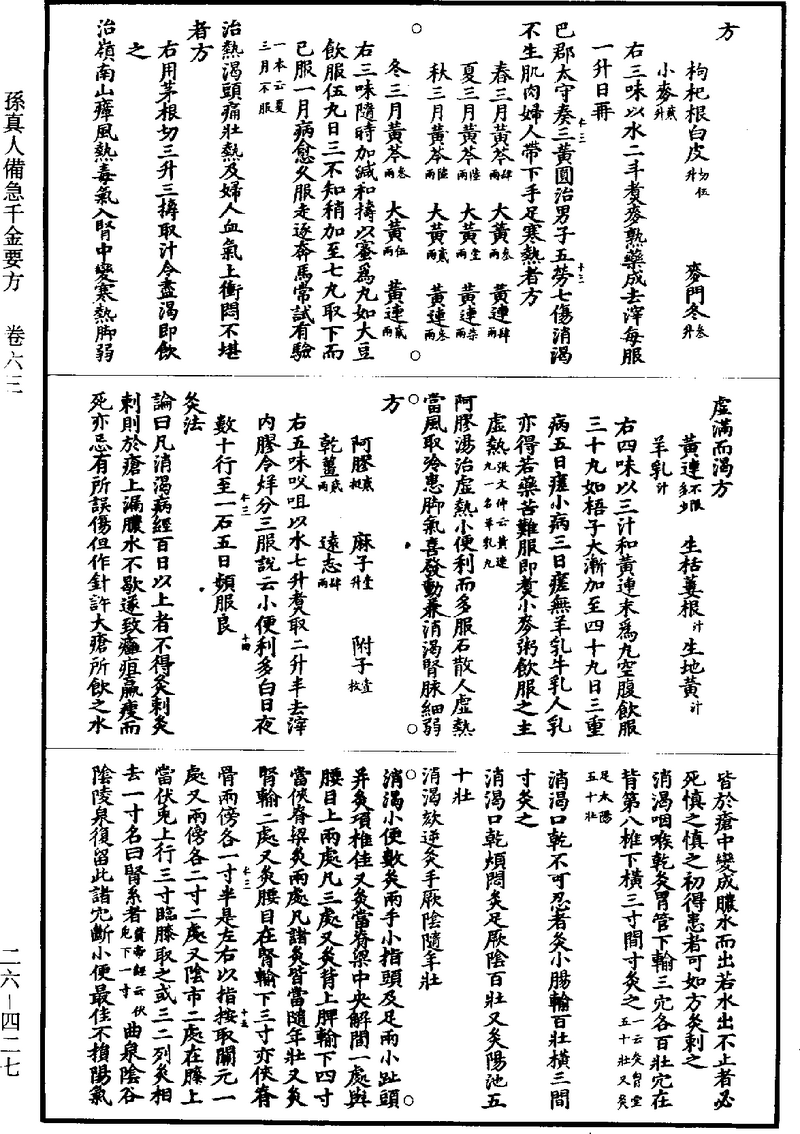 方
枸杞根白皮切伍升　麥門冬叁升
小麥貳升
右三味以水二斗煑麥熟藥成去滓每服
一升日再
巴郡太守奏三黃圓治男子五勞七傷消渴
不生肌肉婦人帶下手足寒熱者方
春三月黃芩肆兩　大黃叁兩　黃連肆兩
夏三月黃芩陸兩　大黃壹兩　黃連柒兩
秋三月黃芩陸兩　大黃貳兩　黃連叁兩
冬三月黃芩叁兩　大黃伍兩　黃連貳兩
右三味隨時加減和擣以蜜爲丸如大豆
飲服伍丸日三不知稍加至七丸取下而
已服一月病愈久服走逐奔馬常試有驗
一本云夏三月不服
治熱渴頭痛壯熱及婦人血氣上衝悶不堪
者方
右用茅根切三升三擣取汁令盡渴即飲
之
治嶺南山瘴風熱毒氣入腎中變寒熱脚弱
虛滿而渴方
黃連不限多少　生栝蔞根汁　生地黃汁
羊乳汁
右四味以三汁和黃連末爲丸空腹飲服
三十丸如梧子大漸加至四十丸日三重
病五日瘥小病三日瘥無羊乳牛乳人乳
亦得若藥苦難服即煑小麥粥飲服之主
虛熱張文仲云黃連丸一名羊乳丸
阿膠湯治虛熱小便利而多服石散人虛熱
當風取冷患脚氣喜發動兼消渴腎脉細弱
方
阿膠貳挺　麻子壹升　附子壹枚
乾薑貳兩　遠志肆兩
右五味㕮咀以水七升煑取二升半去滓
內膠令烊分三服說云小便利多白日夜
數十行至一石五日頻服良
灸法
論曰凡消渴病經百日以上者不得灸刺灸
刺則於瘡上漏膿水不歇遂致癰疽羸瘦而
死亦忌有所誤傷但作針許大瘡所飲之水
皆於瘡中變成膿水而出若水出不止者必
死慎之慎之初得患者可如方灸刺之
消渴咽喉乾灸胃管下輸三穴各百壯穴在
背第八椎下橫三寸間寸灸之一云灸胃堂五十壯又灸
足太陽五十壯
消渴口乾不可忍者灸小腸輸百壯橫三間
寸灸之
消渴口乾煩悶灸足厥陰百壯又灸陽池五
十壯
消渴欬逆灸手厥陰隨年壯
消渴小便數灸兩手小指頭及足兩小趾頭
并灸項椎佳又灸當脊梁中央解間一處與
腰目上兩處凡三處又灸背上脾輸下四寸
當俠脊梁灸兩處凡諸灸皆當隨年壯又灸
腎輸二處又灸腰目在腎輸下三寸亦俠脊
骨兩傍各一寸半是左右以指按取關元一
處又兩傍各二寸二處又陰市二處在膝上
當伏兔上行三寸臨膝取之或三二列灸相
去一寸名曰腎系者黃帝經云伏兔下一寸曲泉陰谷
陰陵泉復留此諸穴斷小便最佳不損陽氣
孫真人備急千金要方　卷六三
二六—四二七